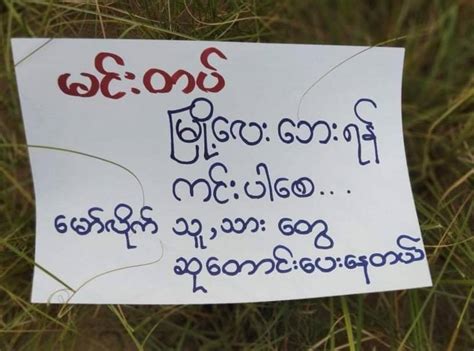 မင်းတပ်
မြို့လေး ဘေးရန်
ကင်းပါစေ...
မော်လိုက် သူ,သား တွေ
ဆုတောင်းပေးနေတယ်